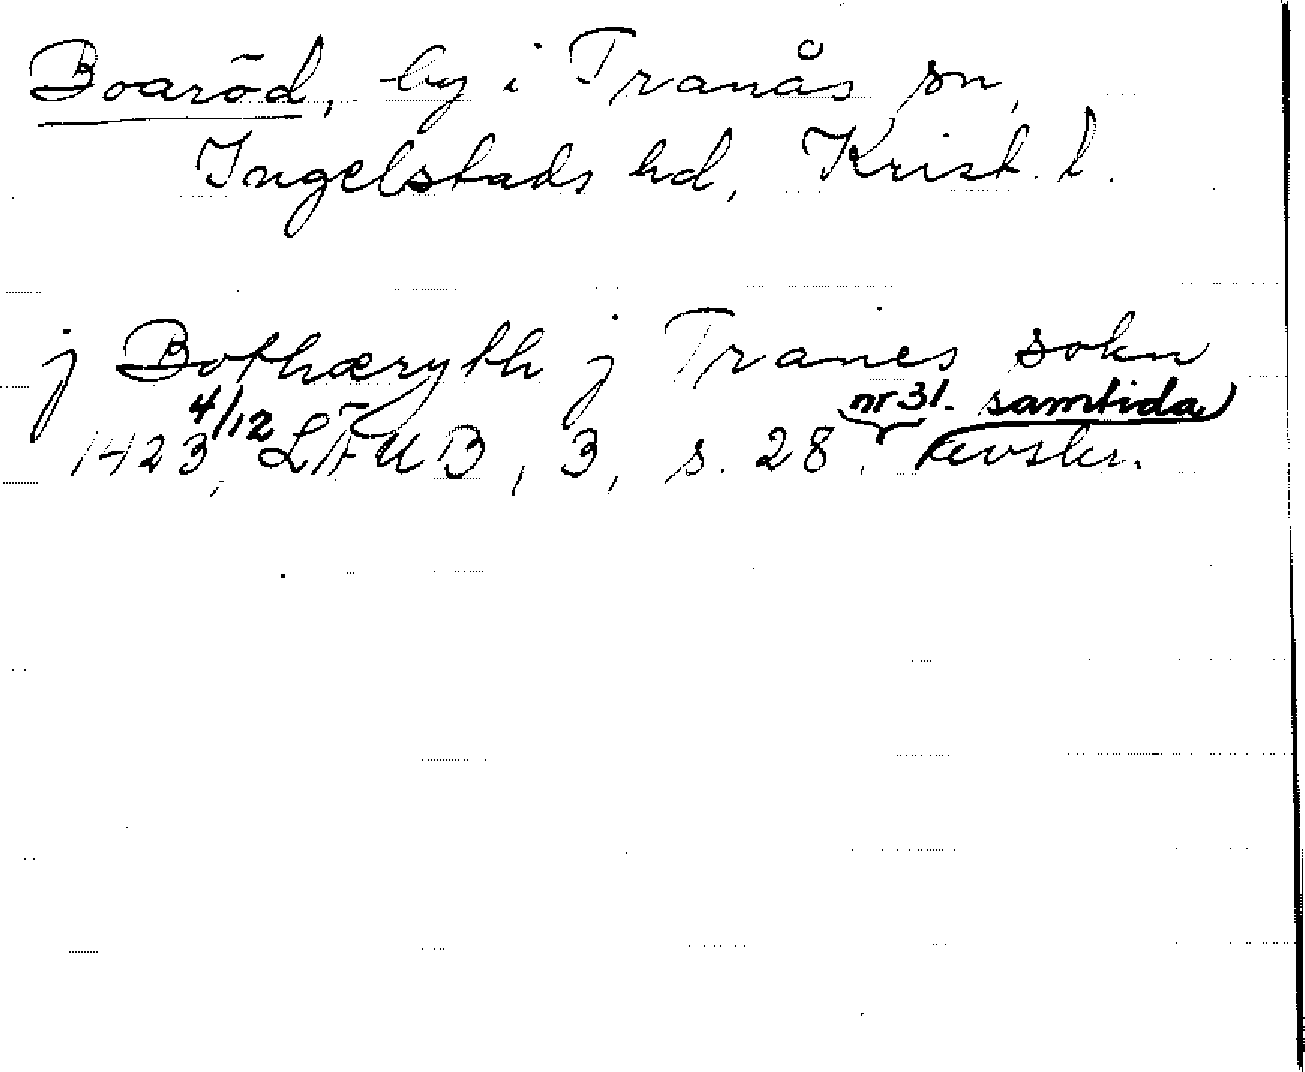 Boaröd, by i Tranås sn,
Ingelstads hd, Krist. l.
j Bothæryth j Tranes sokn
1423 4/12, LÄUB, 3, s. 28. nr 31. samtida avskr.